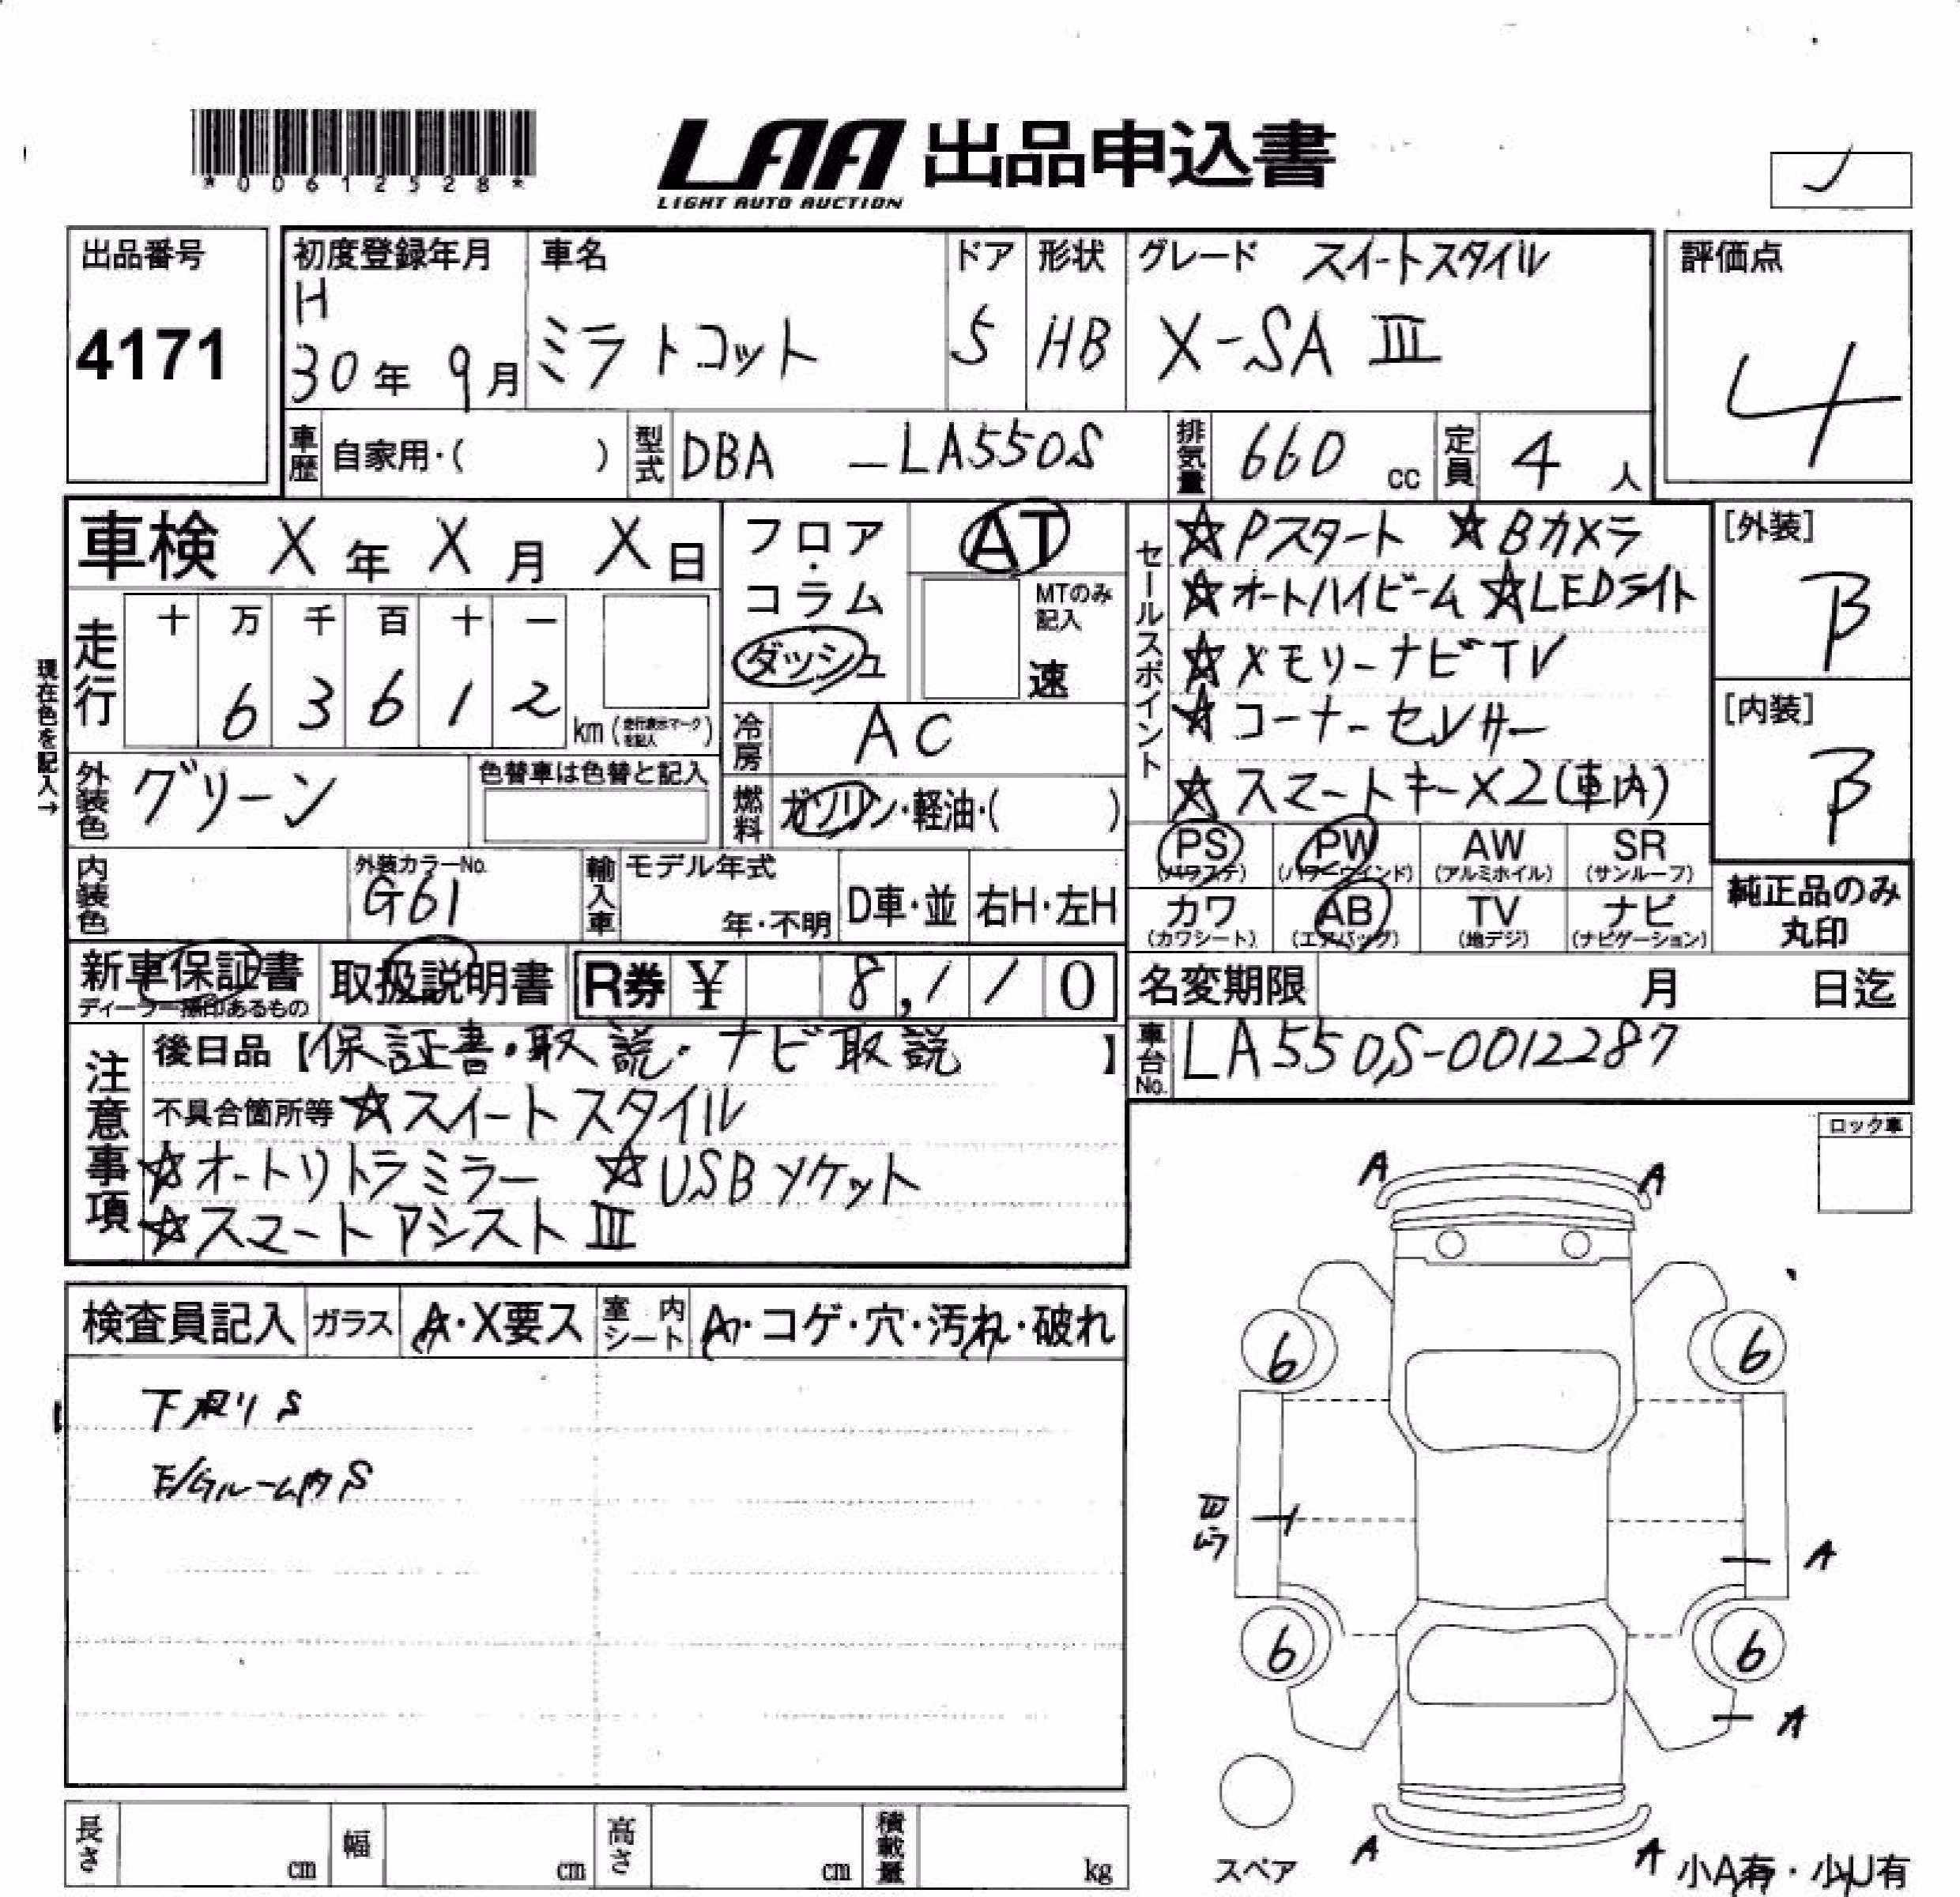 *00612528*
LAA 出品申込書
LIGHT AUTO AUCTION
出品番号 初度登録年月 車名 ドア 形状 グレード スイートスタイル 評価点
4171 H 30年 9月 ミラトコット 5 HB X-SA III 4
車歴 自家用・( ) 型式 DBA -LA550S 排気量 660 cc 定員 4 人
車検 X 年 X 月 X 日
フロア・コラム
ダッシュ
AT
MTのみ記入
速
セールスポイント
☆Pスタート ★Bカメラ
☆オートハイビーム ☆LEDライト
☆メモリーナビTV
☆コーナーセンサー
☆スマートキーX2(車内)
[外装]
B
[内装]
B
現在色を記入→
走行 十 万 千 百 十 一
6 3 6 1 2 km (走行表示マークを記入)
冷房 AC
外装色 グリーン 色替車は色替と記入
燃料 ガソリン・軽油・( )
PS (パワステ) PW (パワーウインド) AW (アルミホイル) SR (サンルーフ)
カワ (カワシート) AB (エアバッグ) TV (地デジ) ナビ (ナビゲーション)
純正品のみ
丸印
内装色 外装カラーNo. G61 輸入車 モデル年式 年・不明 D車・並 右H・左H
新車保証書 取扱説明書 R券 ¥ 8,110
名変期限 月 日迄
車台No. LA550S-0012287
注意事項
後日品【保証書・取説・ナビ取説】
不具合箇所等 ☆スイートスタイル
☆オートリトラミラー ☆USBソケット
☆スマートアシストIII
ロック車
検査員記入 ガラス A・X要ス 室内シート A・コゲ・穴・汚れ・破れ
S
E/Gルーム内S
A A
6 6
A
6 6
A
A A
スペア
小A有・小U有
長さ cm 幅 cm 高さ cm 積載量 kg